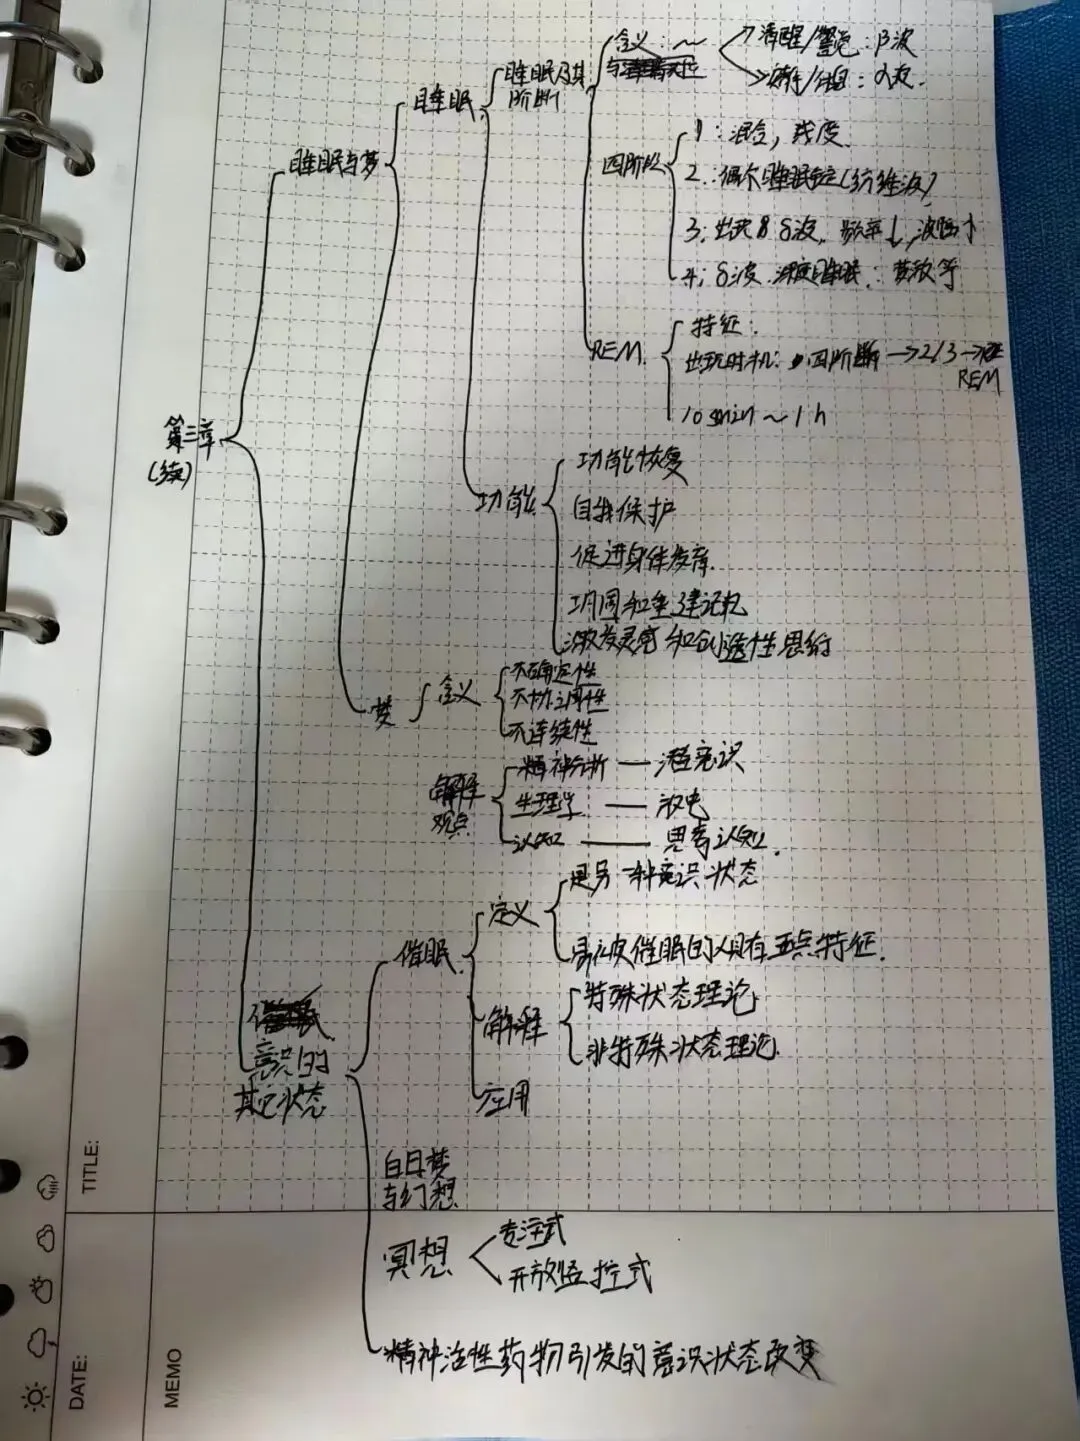 第三章
(续)
睡眠与梦
睡眠
睡眠及其
阶断
含义：～
与
清醒/警觉：β波
安静/休息：α波.
四阶段
1：混合，浅度.
2.：偶尔睡眠锭(纺锤波)
3：出现δ波，频率↓，波幅个
4：δ波.深度睡眠.：梦散等
REM.
特征：
出现时机：四阶断→2/3→
REM
10min～1h
功能
功能恢复
自我保护
促进身体发育.
巩固和重建记忆
激发灵感和创造性思维
梦
含义
不确定性
不协调性
不连续性
解释
观点
精神分析 — 潜意识
生理学 — 放电
认知 — 思考认知.
意识的
其它状态
催眠.
定义
是另一种意识状态
易被催眠的人具有五点特征.
解释
特殊状态理论
非特殊状态理论
应用
白日梦
与幻想
冥想
专注式
开放监控式
精神活性药物引发的意识状态改变
TITLE:
DATE:
MEMO